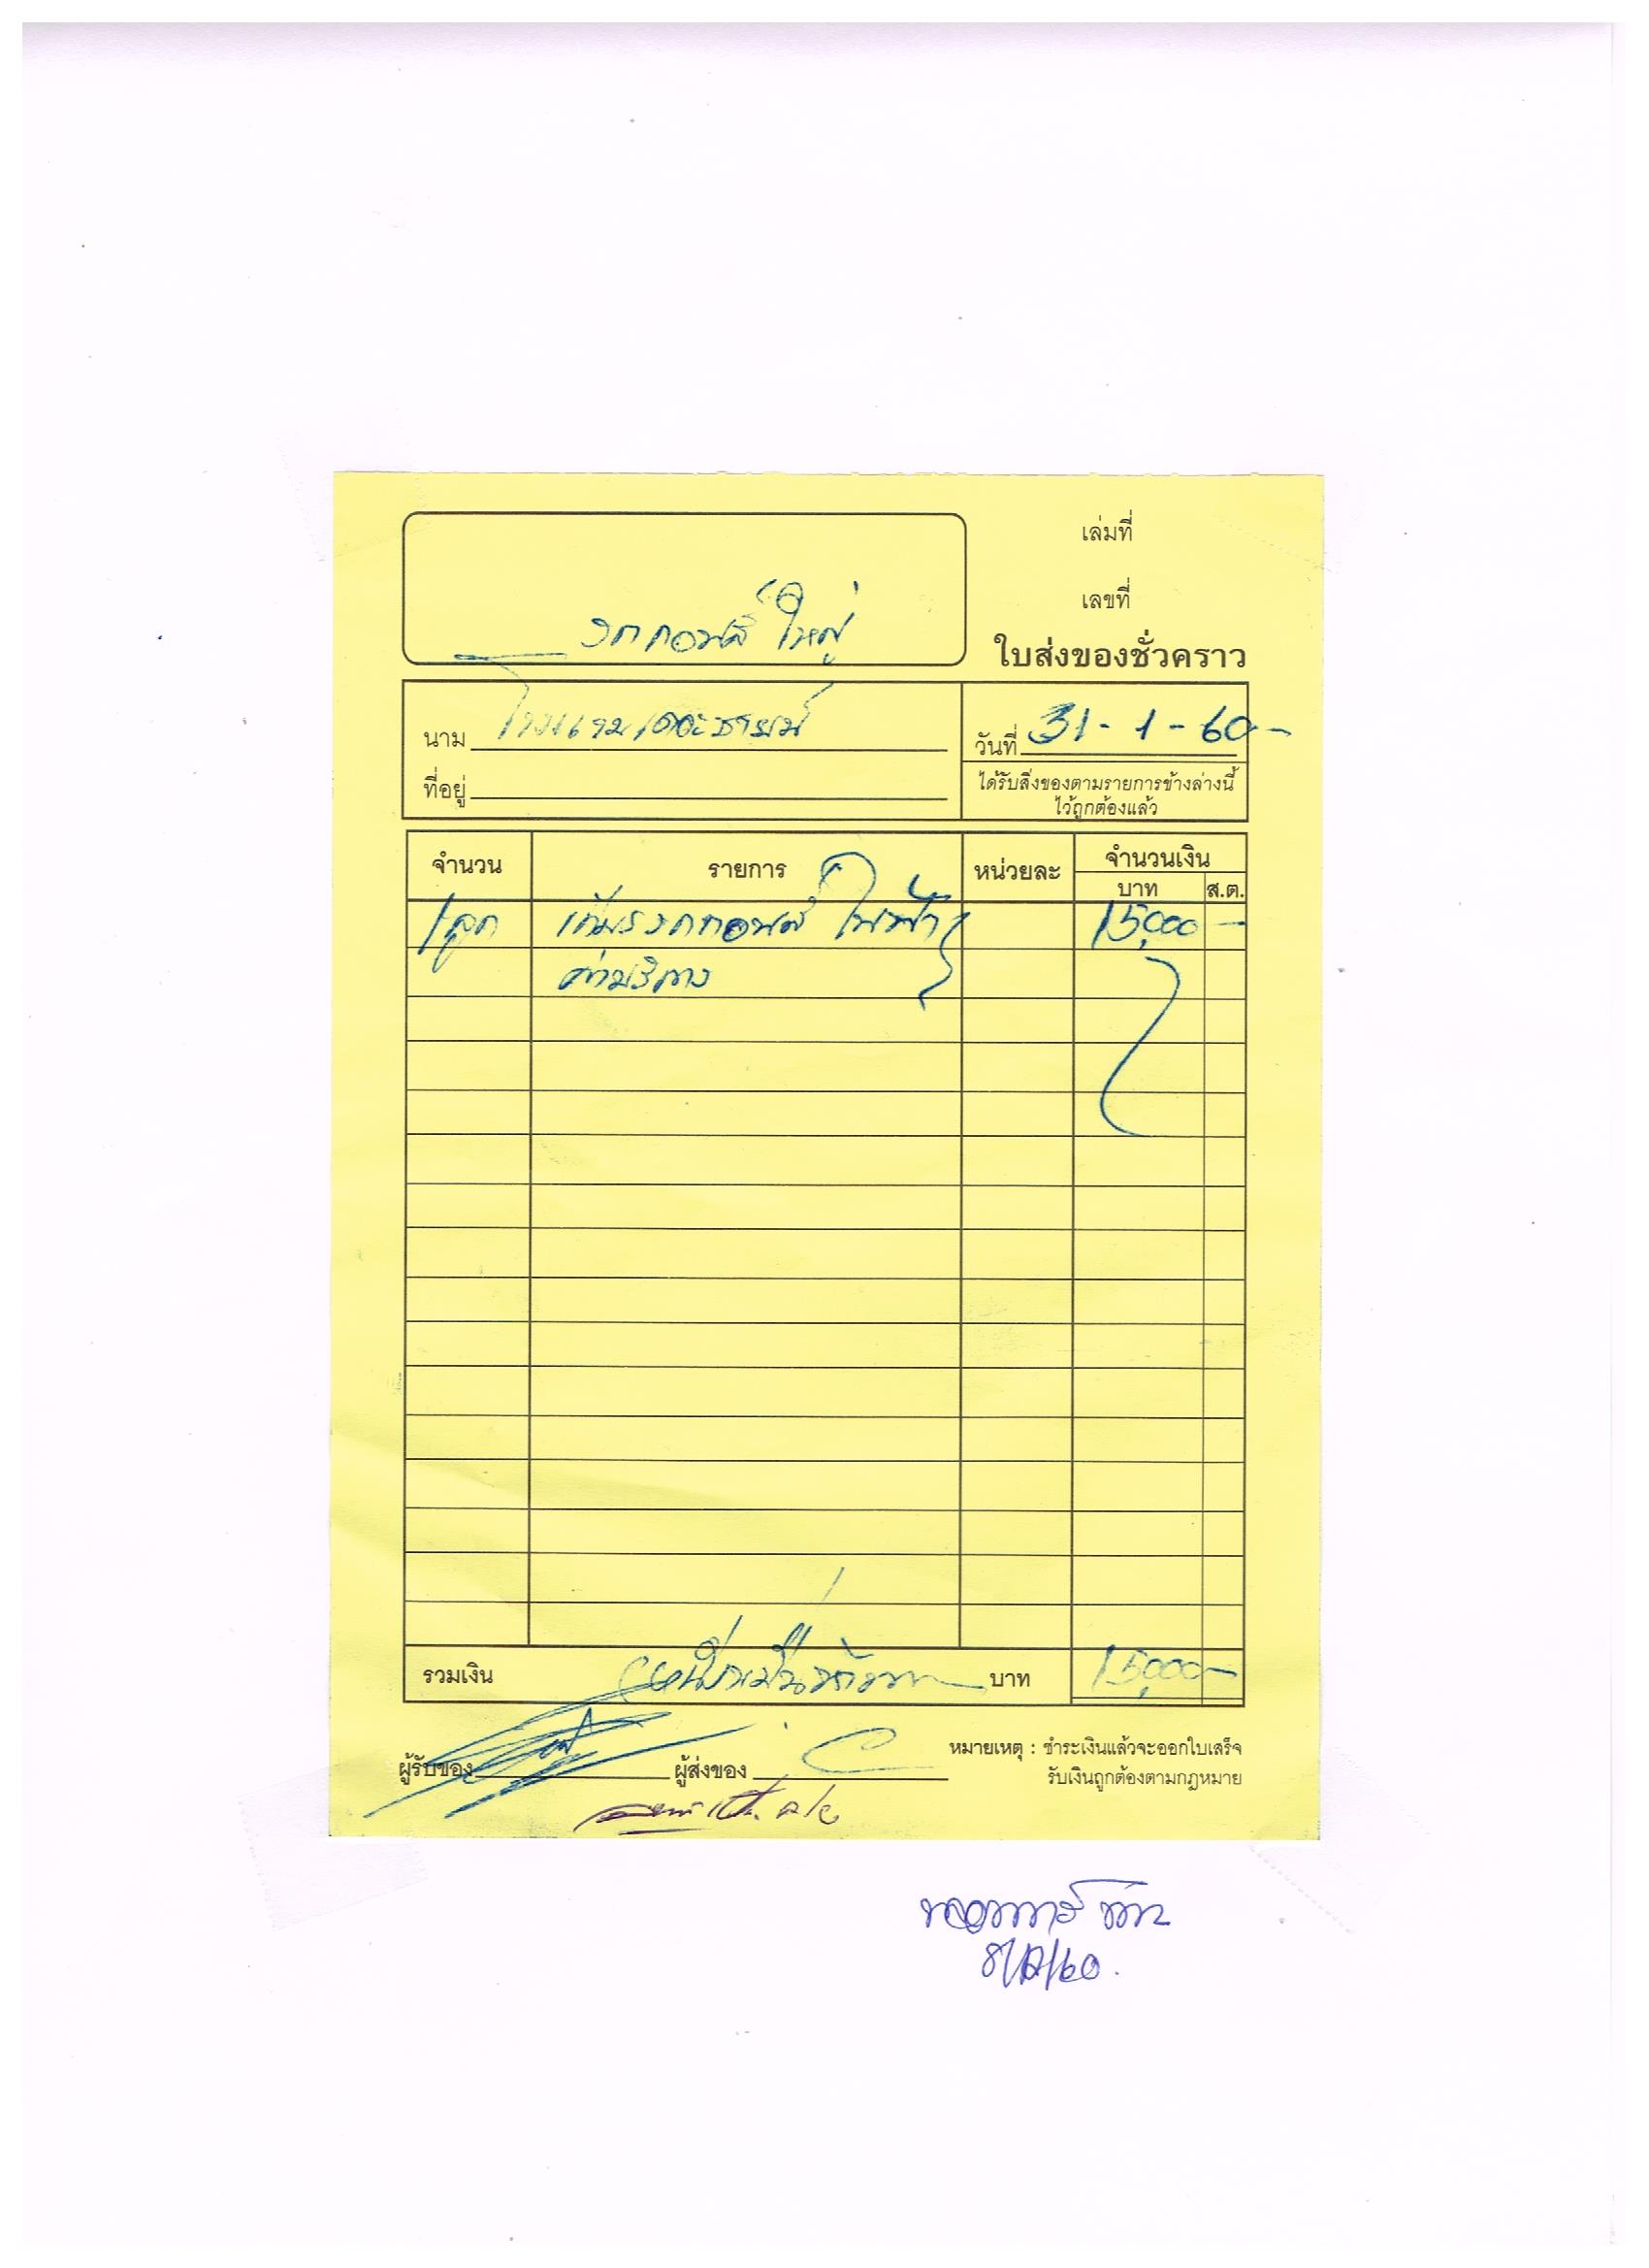 เล่มที่
เลขที่
รถกอล์ฟ ใหญ่
ใบส่งของชั่วคราว
นาม โรงแรม
วันที่ 31-1-60-
ที่อยู่
ได้รับสิ่งของตามรายการข้างล่างนี้
ไว้ถูกต้องแล้ว
จำนวน รายการ หน่วยละ จำนวนเงิน
บาท ส.ต.
1 ลูก รถกอล์ฟ ไฟฟ้า 15,000 -
ค่าบริการ
รวมเงิน (หนึ่งหมื่นห้าพัน บาท 15,000-
ผู้รับของ ผู้ส่งของ
หมายเหตุ : ชำระเงินแล้วจะออกใบเสร็จ
รับเงินถูกต้องตามกฎหมาย